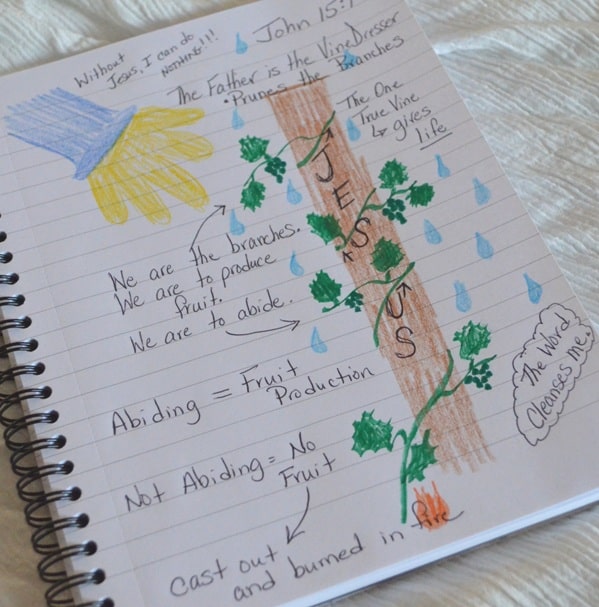 Without
Jesus, I can do
NOTHING!!!
John 15:1
The Father is the VineDresser
• Prunes the Branches
The One
True Vine
↳ gives
life
JESUS
We are the branches.
We are to produce
fruit.
We are to abide.
Abiding = Fruit
Production
Not Abiding = No
Fruit
Cast out
and burned in fire
The Word
Cleanses me.